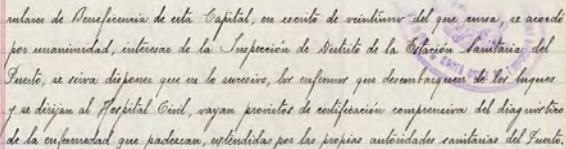 rulares de Beneficencia de esta Capital, en escrito de veintiuno del que cursa, se acordó
por unanimidad, interesar de la Inspección de Distrito de la Estación Sanitaria del
Puerto, se sirva disponer que en lo sucesivo, los enfermos que desembarquen de los buques
y se dirijan al Hospital Civil, vayan provistos de certificación comprensiva del diagnóstico
de la enfermedad que padezcan, extendidas por las propias autoridades sanitarias del Puerto.